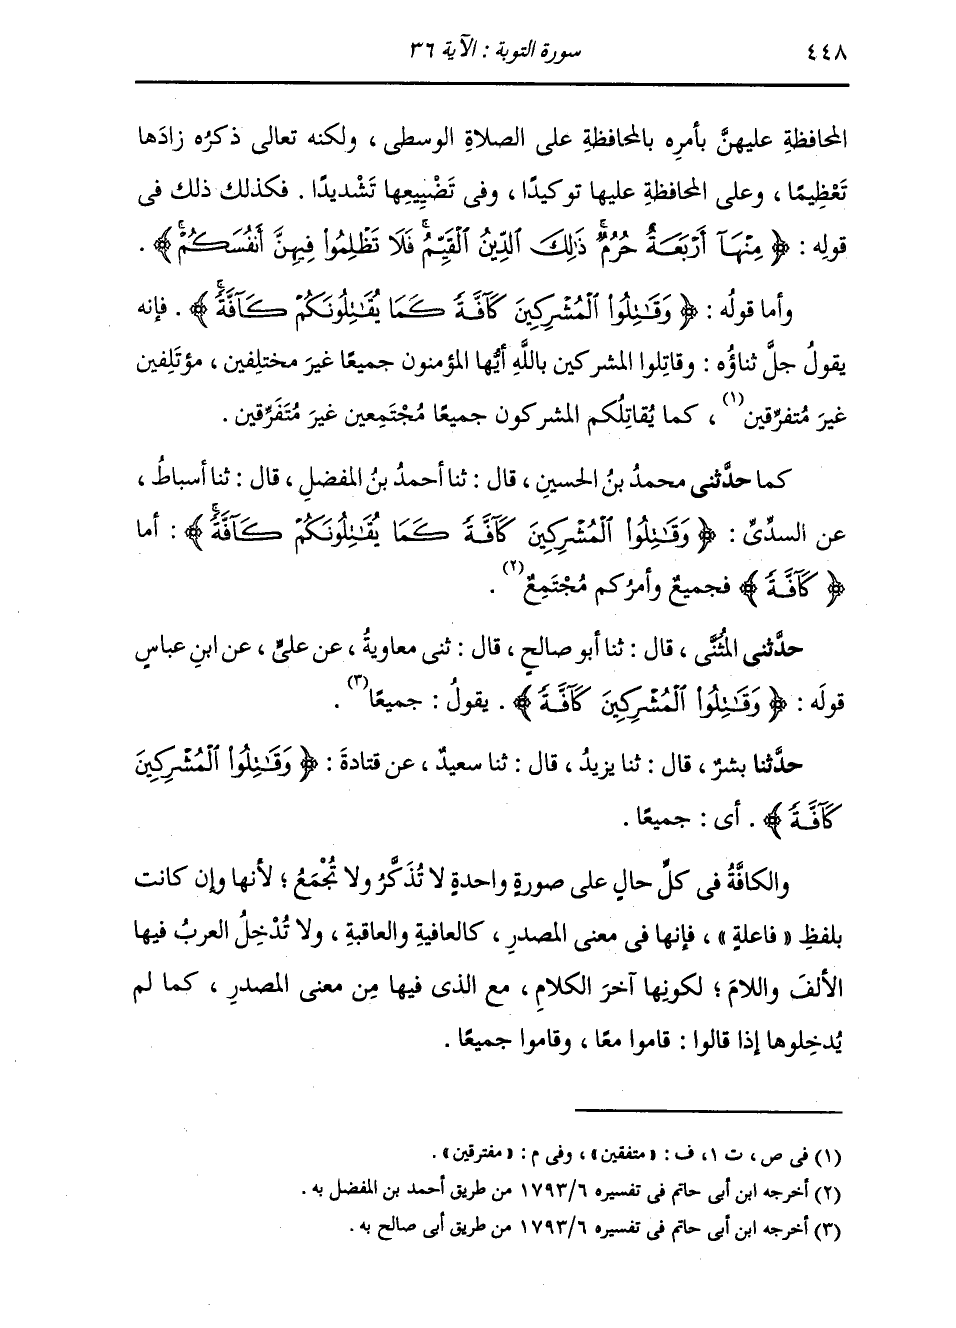 ٤٤٨
سورة التوبة : الآية ٣٦
المحافظةِ عليهنَّ بأمرِه بالمحافظةِ على الصلاةِ الوسطى ، ولكنه تعالى ذكرُه زادَها
تَعْظِيمًا ، وعلى المحافظةِ عليها توكيدًا ، وفى تَضْيِيعِها تَشْديدًا . فكذلك ذلك فى
قولِه : ﴿ مِنْهَآ أَرْبَعَةٌ حُرُمٌۚ ذَٰلِكَ ٱلدِّينُ ٱلْقَيِّمُۚ فَلَا تَظْلِمُوا۟ فِيهِنَّ أَنفُسَكُمْۚ ﴾ .
وأما قولُه : ﴿ وَقَٰتِلُوا۟ ٱلْمُشْرِكِينَ كَآفَّةً كَمَا يُقَٰتِلُونَكُمْ كَآفَّةًۚ ﴾ . فإنه
يقولُ جلَّ ثناؤُه : وقاتِلوا المشركين باللَّهِ أيُّها المؤمنون جميعًا غيرَ مختلِفين ، مؤتَلِفين
غيرَ مُتفرِّقين(١) ، كما يُقاتِلُكم المشركون جميعًا مُجْتَمِعين غيرَ مُتَفَرِّقين .
كما حدَّثنى محمدُ بنُ الحسينِ ، قال : ثنا أحمدُ بنُ المفضلِ ، قال : ثنا أسباطُ ،
عن السدِّىِّ : ﴿ وَقَٰتِلُوا۟ ٱلْمُشْرِكِينَ كَآفَّةً كَمَا يُقَٰتِلُونَكُمْ كَآفَّةًۚ ﴾ : أما
﴿ كَآفَّةً ﴾ فجميعٌ وأمرُكم مُجْتَمِعٌ(٢) .
حدَّثنى المُثَنَّى ، قال : ثنا أبو صالحٍ ، قال : ثنى معاويةُ ، عن علىٍّ ، عن ابنِ عباسٍ
قولَه : ﴿ وَقَٰتِلُوا۟ ٱلْمُشْرِكِينَ كَآفَّةً ﴾ . يقولُ : جميعًا(٣) .
حدَّثنا بشرٌ ، قال : ثنا يزيدُ ، قال : ثنا سعيدٌ ، عن قتادةَ : ﴿ وَقَٰتِلُوا۟ ٱلْمُشْرِكِينَ
كَآفَّةً ﴾ . أى : جميعًا .
والكافَّةُ فى كلِّ حالٍ على صورةٍ واحدةٍ لا تُذَكَّرُ ولا تُجْمَعُ ؛ لأنها وإن كانت
بلفظِ « فاعلةٍ » ، فإنها فى معنى المصدرِ ، كالعافيةِ والعاقبةِ ، ولا تُدْخِلُ العربُ فيها
الألفَ واللامَ ؛ لكونِها آخرَ الكلامِ ، مع الذى فيها مِن معنى المصدرِ ، كما لم
يُدخِلوها إذا قالوا : قاموا معًا ، وقاموا جميعًا .
(١) فى ص ، ت ١، ف : « متفقين» ، وفى م : « مفترقين» .
(٢) أخرجه ابن أبى حاتم فى تفسيره ١٧٩٣/٦ من طريق أحمد بن المفضل به .
(٣) أخرجه ابن أبى حاتم فى تفسيره ١٧٩٣/٦ من طريق أبى صالح به .